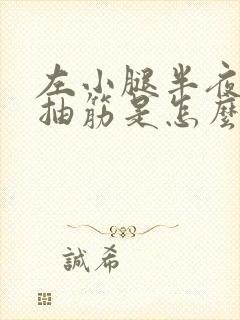 左小腿半夜
抽筋是怎麼
誠希